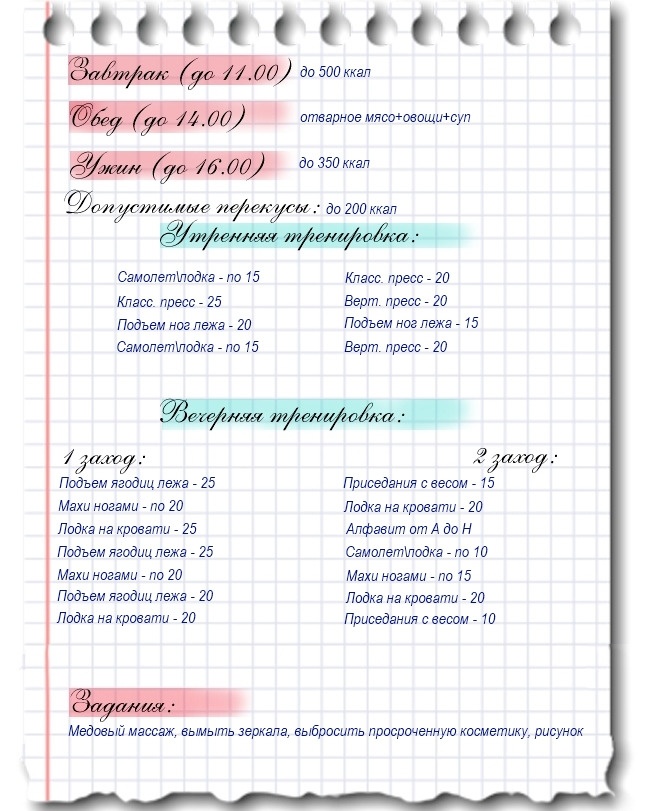 Завтрак (до 11.00) до 500 ккал
Обед (до 14.00) отварное мясо+овощи+суп
Ужин (до 16.00) до 350 ккал
Допустимые перекусы: до 200 ккал
Утренняя тренировка:
Самолет\лодка - по 15 Класс. пресс - 20
Класс. пресс - 25 Верт. пресс - 20
Подъем ног лежа - 20 Подъем ног лежа - 15
Самолет\лодка - по 15 Верт. пресс - 20
Вечерняя тренировка:
1 заход: 2 заход:
Подъем ягодиц лежа - 25 Приседания с весом - 15
Махи ногами - по 20 Лодка на кровати - 20
Лодка на кровати - 25 Алфавит от А до Н
Подъем ягодиц лежа - 25 Самолет\лодка - по 10
Махи ногами - по 20 Махи ногами - по 15
Подъем ягодиц лежа - 20 Лодка на кровати - 20
Лодка на кровати - 20 Приседания с весом - 10
Задания:
Медовый массаж, вымыть зеркала, выбросить просроченную косметику, рисунок